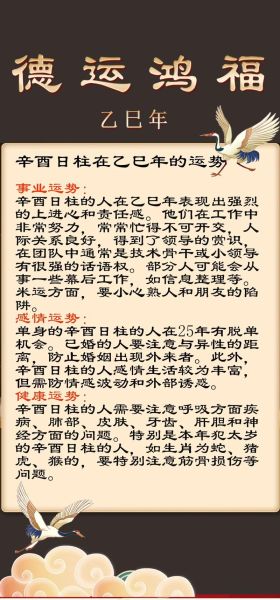 德运鸿福
乙巳年
辛酉日柱在乙巳年的运势
事业运势：
辛酉日柱的人在乙巳年表现出强烈
的上进心和责任感。他们在工作中
非常努力，常常忙得不可开交，人
际关系良好，得到了领导的赏识，
在团队中通常是技术骨干或小领导
有很强的话语权。部分人可能会从
事一些幕后工作，如信息整理等。
米运方面，要小心熟人和朋友的陷
阱。
感情运势：
单身的辛酉日柱的人在25年有脱单
机会。已婚的人要注意与异性的距
离，防止婚姻出现外来者。此外，
辛酉日柱的人感情生活较为丰富，
但需防情感波动和外部诱惑。
健康运势：
辛酉日柱的人需要注意呼吸方面疾
病、肺部、皮肤、牙齿、肝胆和神
经方面的问题。特别是本年犯太岁
的辛酉日柱的人，如生肖为蛇、猪
虎、猴的，要特别注意筋骨损伤等
问题。